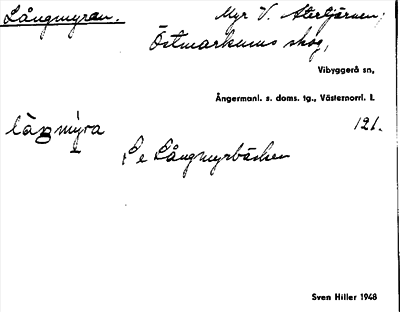 Långmyran. Myr V. Stertjärnen,
Östmarkums skog,
Vibyggerå sn,
Ångermanl. s. doms. tg., Västernorrl. l.
låŋmy̱ra 121.
Se Långmyrbäcken
Sven Hiller 1948